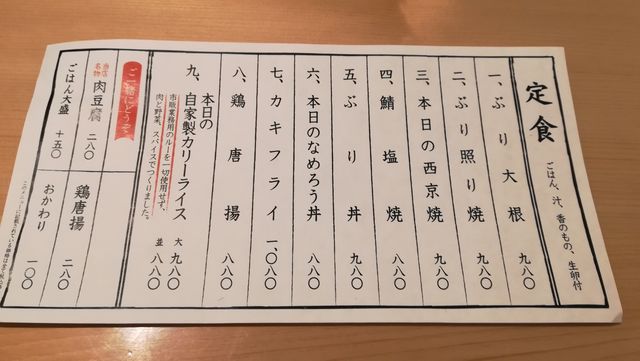 定食
ごはん、汁、香のもの、生卵付
一、ぶり大根 九八〇
二、ぶり照り焼 九八〇
三、本日の西京焼 九八〇
四、鯖塩焼 八八〇
五、ぶり丼 九八〇
六、本日のなめろう丼 八八〇
七、カキフライ 一、〇八〇
八、鶏唐揚 八八〇
九、本日の自家製カリーライス 大 九八〇 並 八八〇
市販業務用のルーを一切使用せず、
肉と野菜、スパイスでつくりました。
ご一緒にどうぞ
当店名物 肉豆腐 二八〇
鶏唐揚 二八〇
ごはん大盛 +五〇
おかわり 一〇〇